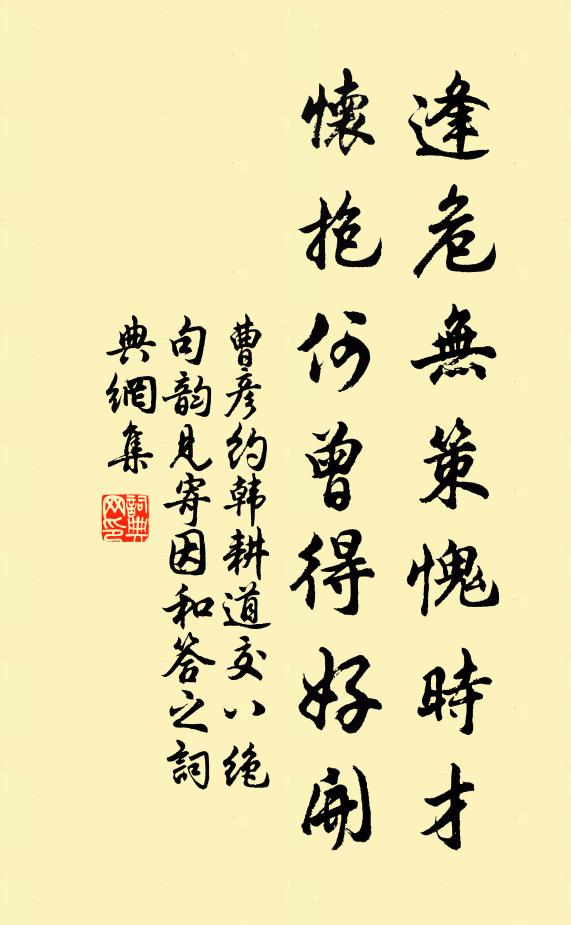 逢危無策愧時才
懷抱何曾得好開
曹彦約韩耕道交八绝
句韵見寄因和答之詞
典網集
詞典
网印